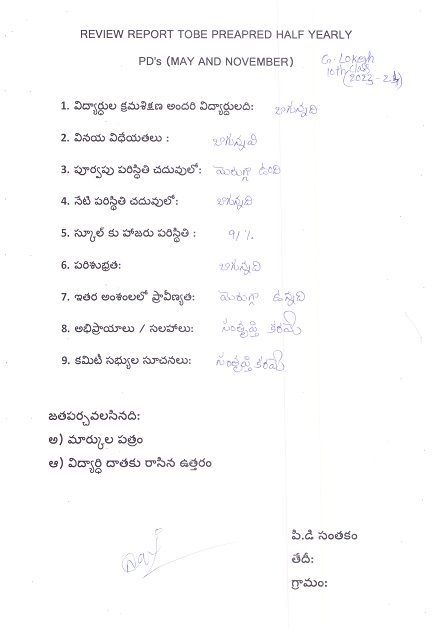 REVIEW REPORT TOBE PREAPRED HALF YEARLY
PD's (MAY AND NOVEMBER)
G. Lokesh
10th class
(2023 - 24)
1. విద్యార్థుల క్రమశిక్షణ అందరి విద్యార్థులది: బాగున్నది
2. వినయ విధేయతలు : బాగున్నవి
3. పూర్వపు పరిస్థితి చదువులో: మెరుగ్గా ఉంది
4. నేటి పరిస్థితి చదువులో: బాగున్నది
5. స్కూల్ కు హాజరు పరిస్థితి : 91 %
6. పరిశుభ్రత: బాగున్నది
7. ఇతర అంశంలలో ప్రావీణ్యత: మెరుగ్గా ఉన్నది
8. అభిప్రాయాలు / సలహాలు: సంతృప్తి కరమే
9. కమిటీ సభ్యుల సూచనలు: సంతృప్తి కరమే
జతపర్చవలసినది:
అ) మార్కుల పత్రం
ఆ) విద్యార్థి దాతకు రాసిన ఉత్తరం
పి.డి సంతకం
తేదీ:
గ్రామం: